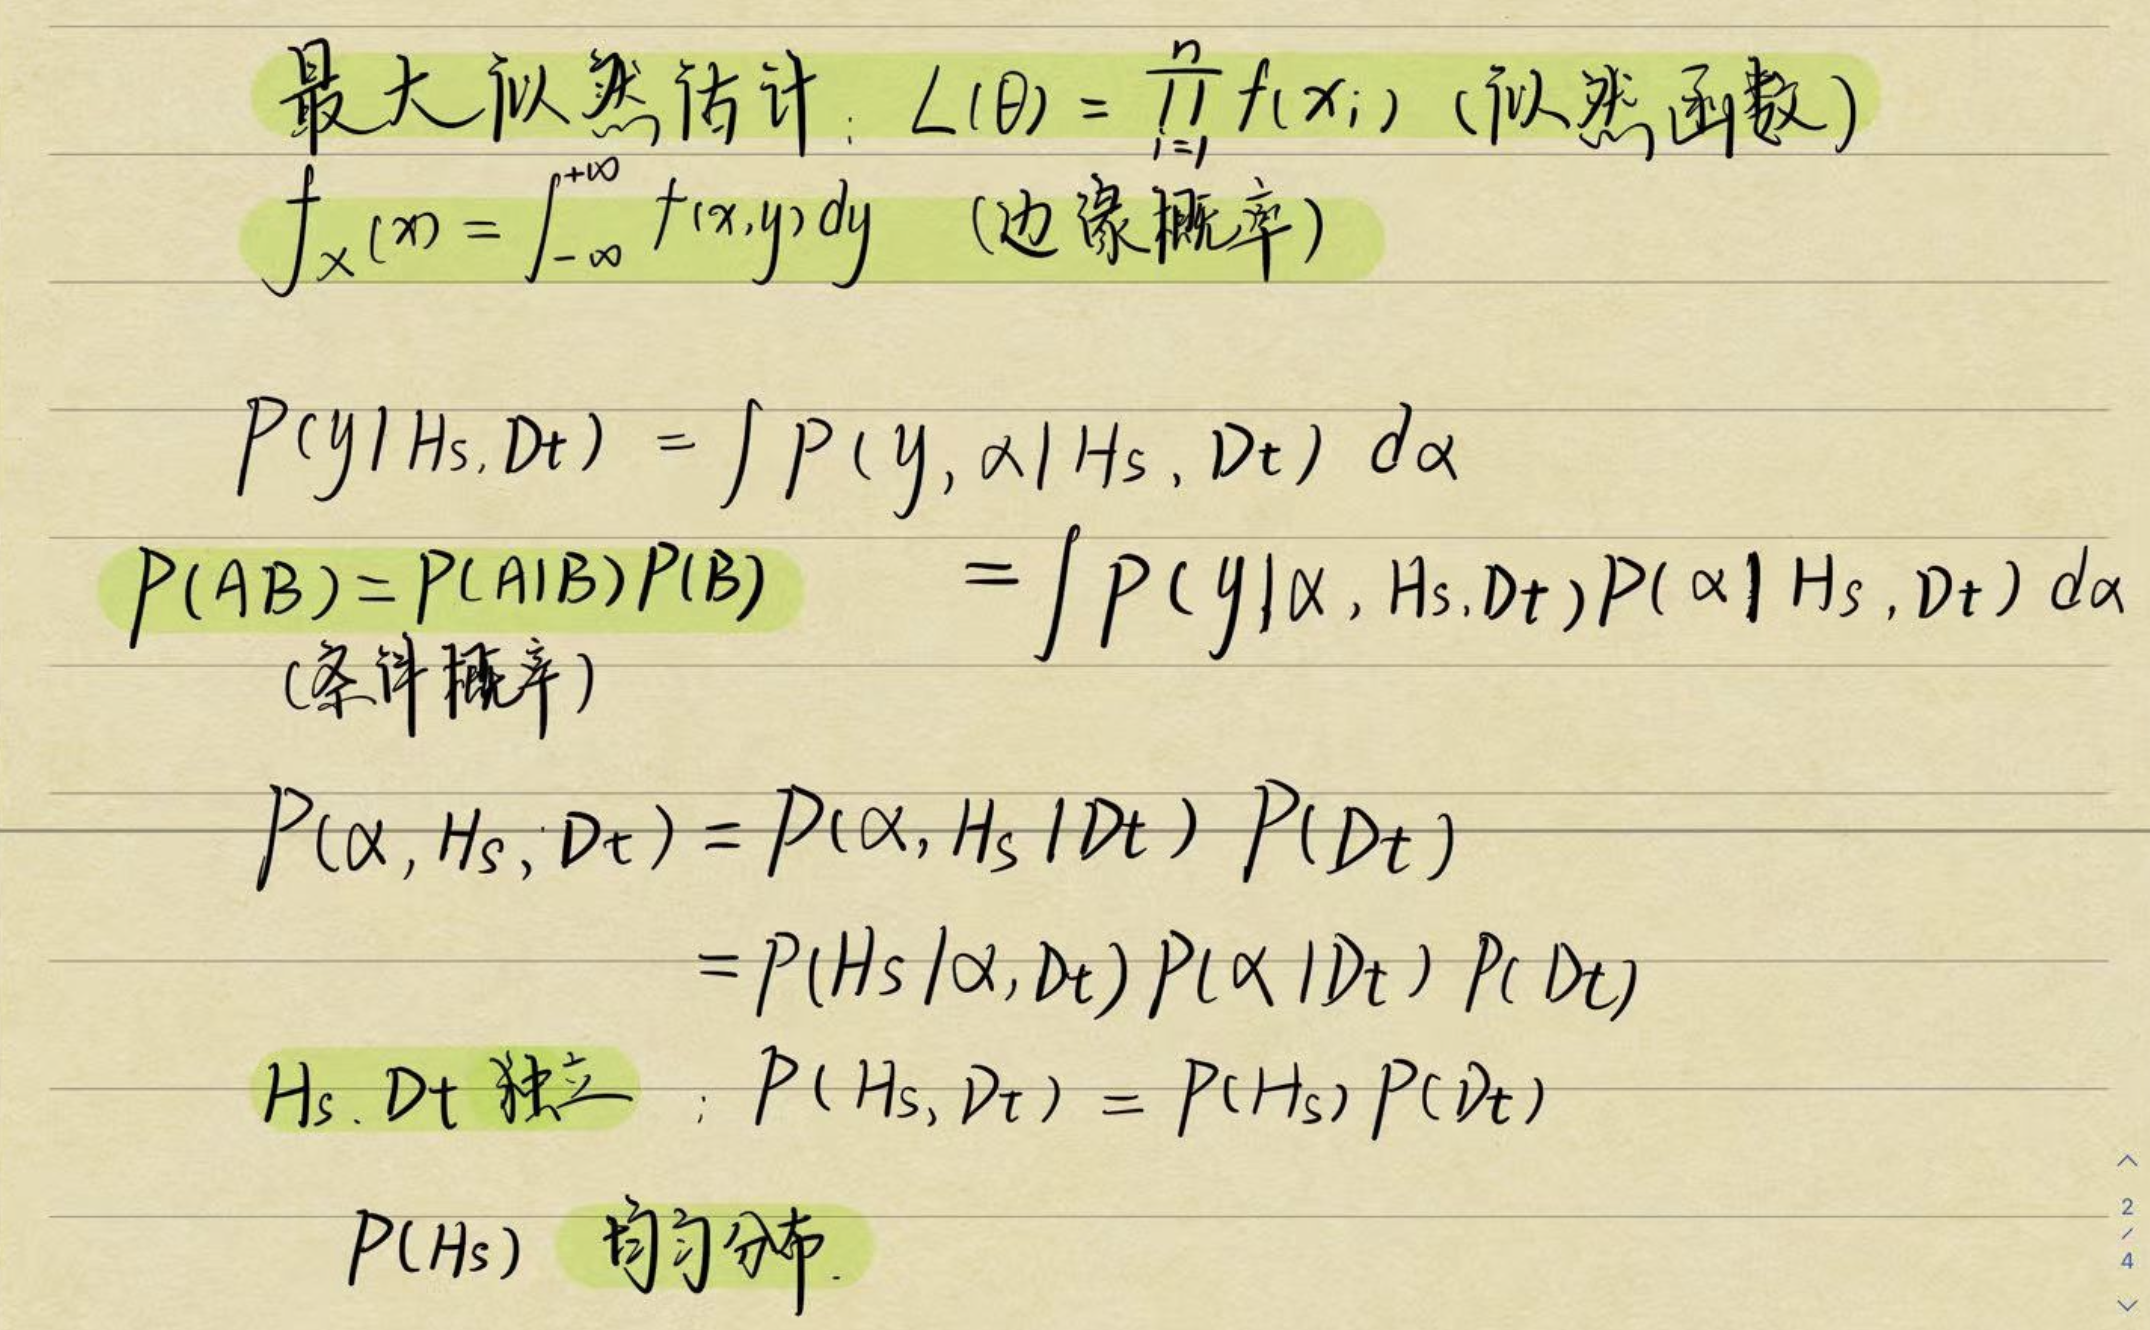 最大似然估计: L(θ) = ∏_{i=1}^{n} f(x_i) (似然函数)
f_X(x) = ∫_{-∞}^{+∞} f(x,y) dy (边缘概率)
P(y|Hs,Dt) = ∫ P(y,α|Hs,Dt) dα
P(AB)=P(A|B)P(B) = ∫ P(y|α,Hs,Dt)P(α|Hs,Dt) dα
(条件概率)
P(α,Hs,Dt) = P(α,Hs|Dt) P(Dt)
= P(Hs|α,Dt) P(α|Dt) P(Dt)
Hs.Dt 独立 : P(Hs,Dt) = P(Hs) P(Dt)
P(Hs) 均匀分布.
2
/
4